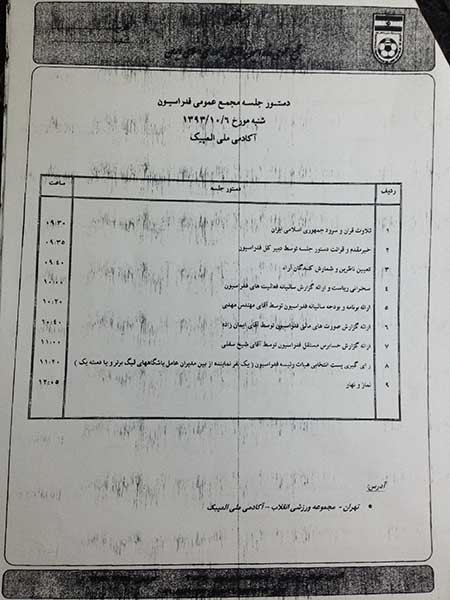 دستور جلسه مجمع عمومی فدراسیون
شنبه مورخ ۱۳۹۳/۱۰/۶
آکادمی ملی المپیک
ردیف دستور جلسه ساعت
۱ تلاوت قران و سرود جمهوری اسلامی ایران ۰۹:۳۰
۲ خیرمقدم و قرائت دستور جلسه توسط دبیر کل فدراسیون ۰۹:۳۵
۳ تعیین ناظرین و شمارش کنندگان اراء ۰۹:۴۰
۴ سخنرانی ریاست و ارائه گزارش سالیانه فعالیت های فدراسیون ۱۰:۰۰
۵ ارائه برنامه و بودجه سالیانه فدراسیون توسط آقای مهندس مهدیی ۱۰:۲۰
۶ ارائه گزارش صورت های مالی فدراسیون توسط آقای ایمان زاده ۱۰:۴۰
۷ ارائه گزارش حسابرس مستقل فدراسیون توسط آقای شیخ سفلی ۱۱:۰۰
۸ رای گیری پست انتخابی هیات رئیسه فدراسیون ( یک نفر نماینده از بین مدیران عامل باشگاههای لیگ برتر و یا دسته یک ) ۱۱:۲۰
۹ نماز و نهار ۱۲:۰۵
آدرس:
• تهران - مجموعه ورزشی انقلاب - آکادمی ملی المپیک